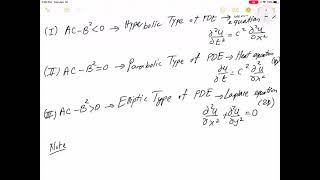 (I) AC-B²<0 → Hyperbolic Type of PDE → wave equation
∂²u/∂t² = c² ∂²u/∂x²
(II) AC-B²=0 → Parabolic Type of PDE → Heat equation (1D)
∂u/∂t = c² ∂²u/∂x²
(III) AC-B²>0 → Elliptic Type of PDE → Laplace equation (2D)
∂²u/∂x² + ∂²u/∂y² = 0
Note